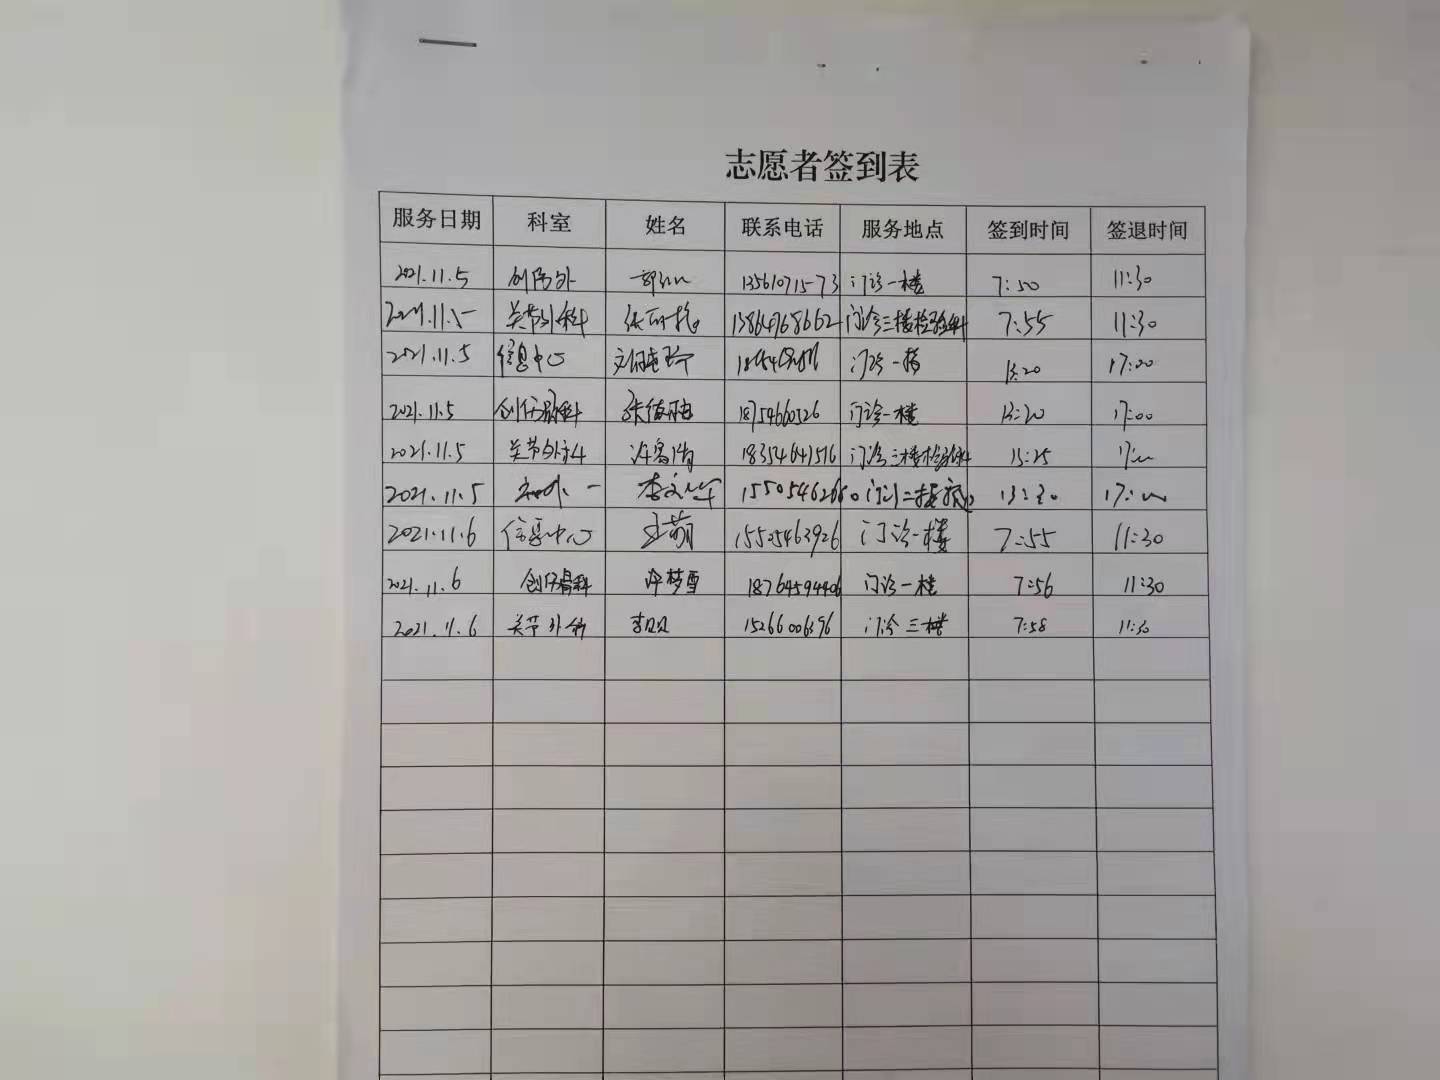 志愿者签到表
服务日期 科室 姓名 联系电话 服务地点 签到时间 签退时间
2021.11.5 创伤外 13561071573 门诊一楼 7:50 11:30
2021.11.5 关节外科 13864768662 门诊三楼检验科 7:55 11:30
2021.11.5 信息中心 门诊一楼 13:20 17:00
2021.11.5 创伤骨科 18754660526 门诊一楼 13:20 17:00
2021.11.5 关节外科 18354641516 门诊三楼检验科 13:25 17:00
2021.11.5 李文华 15505462680 13:30 17:00
2021.11.6 信息中心 王萌 15505463926 门诊一楼 7:55 11:30
2021.11.6 创伤骨科 许梦雪 18764594406 门诊一楼 7:56 11:30
2021.11.6 关节外科 李贝贝 15266006396 门诊三楼 7:58 11:30